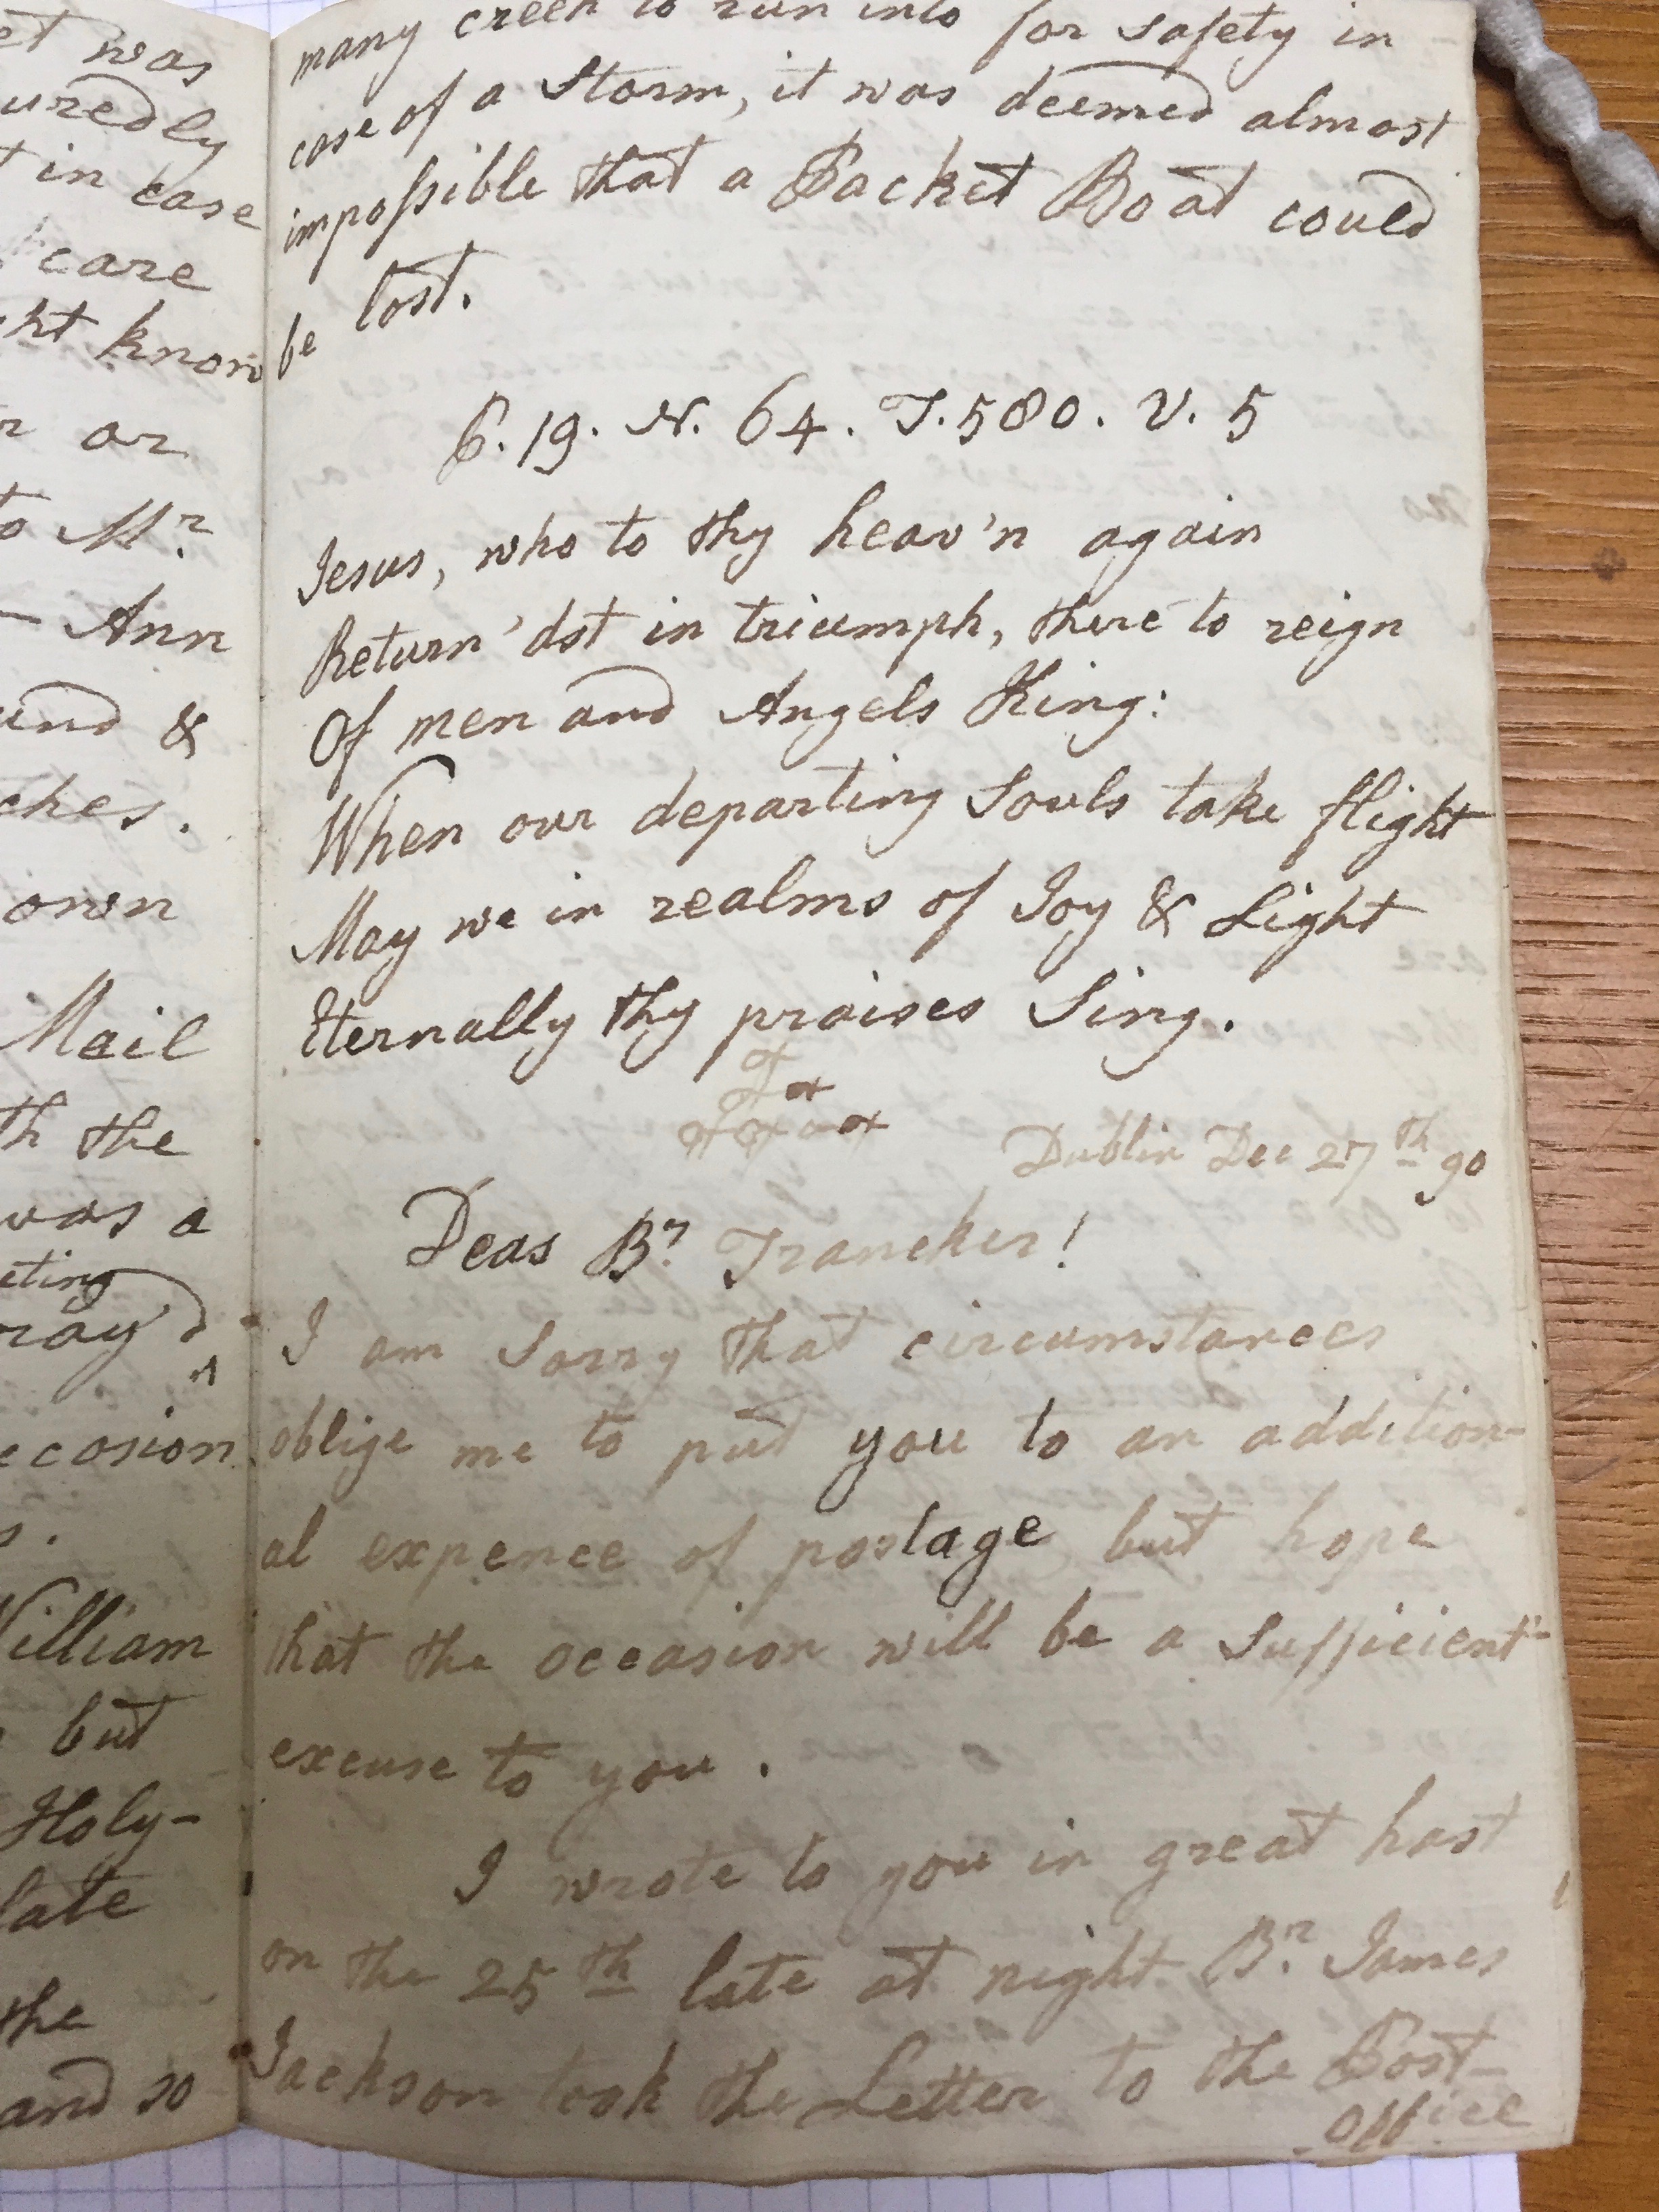 et was
uredly
t in case
care
ht know
r or
to Mr.
- Ann
und &
ches.
own
Mail
th the
was a
eting
ray'd
ccasion
s.
William
but
Holy-
late
the
and so
many creek to run into for safety in
case of a Storm, it was deemed almost
impossible that a Packet Boat could
be lost.
P. 19. N. 64. T. 580. V. 5
Jesus, who to thy heav'n again
Return'dst in trieumph, there to reign
Of men and Angels King:
When our departing Souls take flight
May we in realms of Joy & Light
Eternally thy praises Sing.
Dublin Dec 27th 90
Dear Br. Traneker!
I am Sorry that circumstances
oblige me to put you to an addition-
al expence of postage but hope
that the occasion will be a Sufficient
excuse to you.
I wrote to you in great hast
on the 25th late at night. Br. James
Jackson took the Letter to the Post-
Office